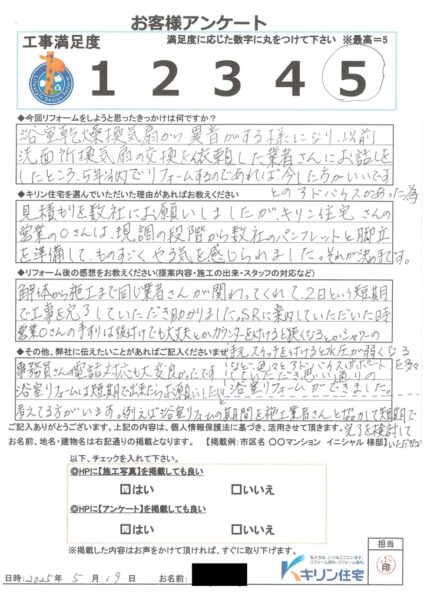 お客様アンケート
工事満足度
満足度に応じた数字に丸をつけて下さい ※最高=5
1 2 3 4 5
◆今回リフォームをしようと思ったきっかけは何ですか?
浴室乾燥換気扇から異音がする様になり、以前
洗面所換気扇の交換を依頼した業者さんにお話をし
たところ、5年以内でリフォームするのであれば今した方がいいです
とのアドバイスがあった為
◆キリン住宅を選んでいただいた理由があればお教えください
見積もりを数社にお願いしましたがキリン住宅さんの
営業のOさんは、現調の段階から数社のパンフレットと脚立
を準備して、ものすごくやる気を感じられました。それが決め手です。
◆リフォーム後の感想をお教えください(提案内容・施工の出来・スタッフの対応など)
解体から施工まで同じ業者さんが関わってくれて、2日という短期
で工事を完了していただき助かりました。SRに案内していただいた時
営業Oさんの手すりは後付けでも大丈夫とか、カウンターを付けると狭くなるとかシャワーの
手元スイッチを付けると水圧が弱くなる
など色々とアドバイスやサポートを
していただき思い通りの
浴室リフォームができました。
◆その他、弊社に伝えたいことがあればご記入くださいませ
事務員さんの電話対応も大変良かったです!
浴室リフォームは短期で出来たらお願いしたいと
考えてる方がいます。例えば浴室リフォームの期間を施工業者さんと協力して短期間で
完了を検討して
いただきたい
ご記入ありがとうございます。上記の内容は、個人情報保護法に基づき、活用させて頂きます。
お名前、地名・建物名は右記通りの掲載となります。 【掲載例:市区名 〇〇マンション イニシャル 様邸】
以下、チェックを入れて下さい。
◎HPに【施工写真】を掲載しても良い
☑はい □いいえ
◎HPに【アンケート】を掲載しても良い
☑はい □いいえ
※掲載した内容はお声をかけて頂ければ、すぐに取り下げます。
日時:2025年 5月 19日 お名前:
キリン住宅
担当